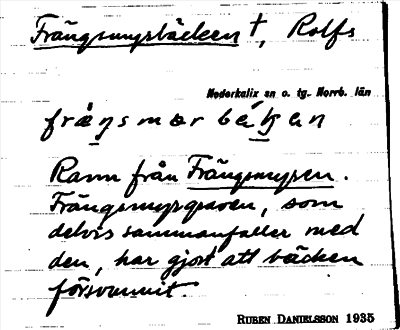 Frängsmyrbäcken †, Rolfs
Nederkalix sn o. tg. Norrb. län
Rann från Frängsmyren.
Frängsmyrgraven, som
delvis sammanfaller med
den, har gjort att bäcken
försvunnit.
RUBEN DANIELSSON 1935